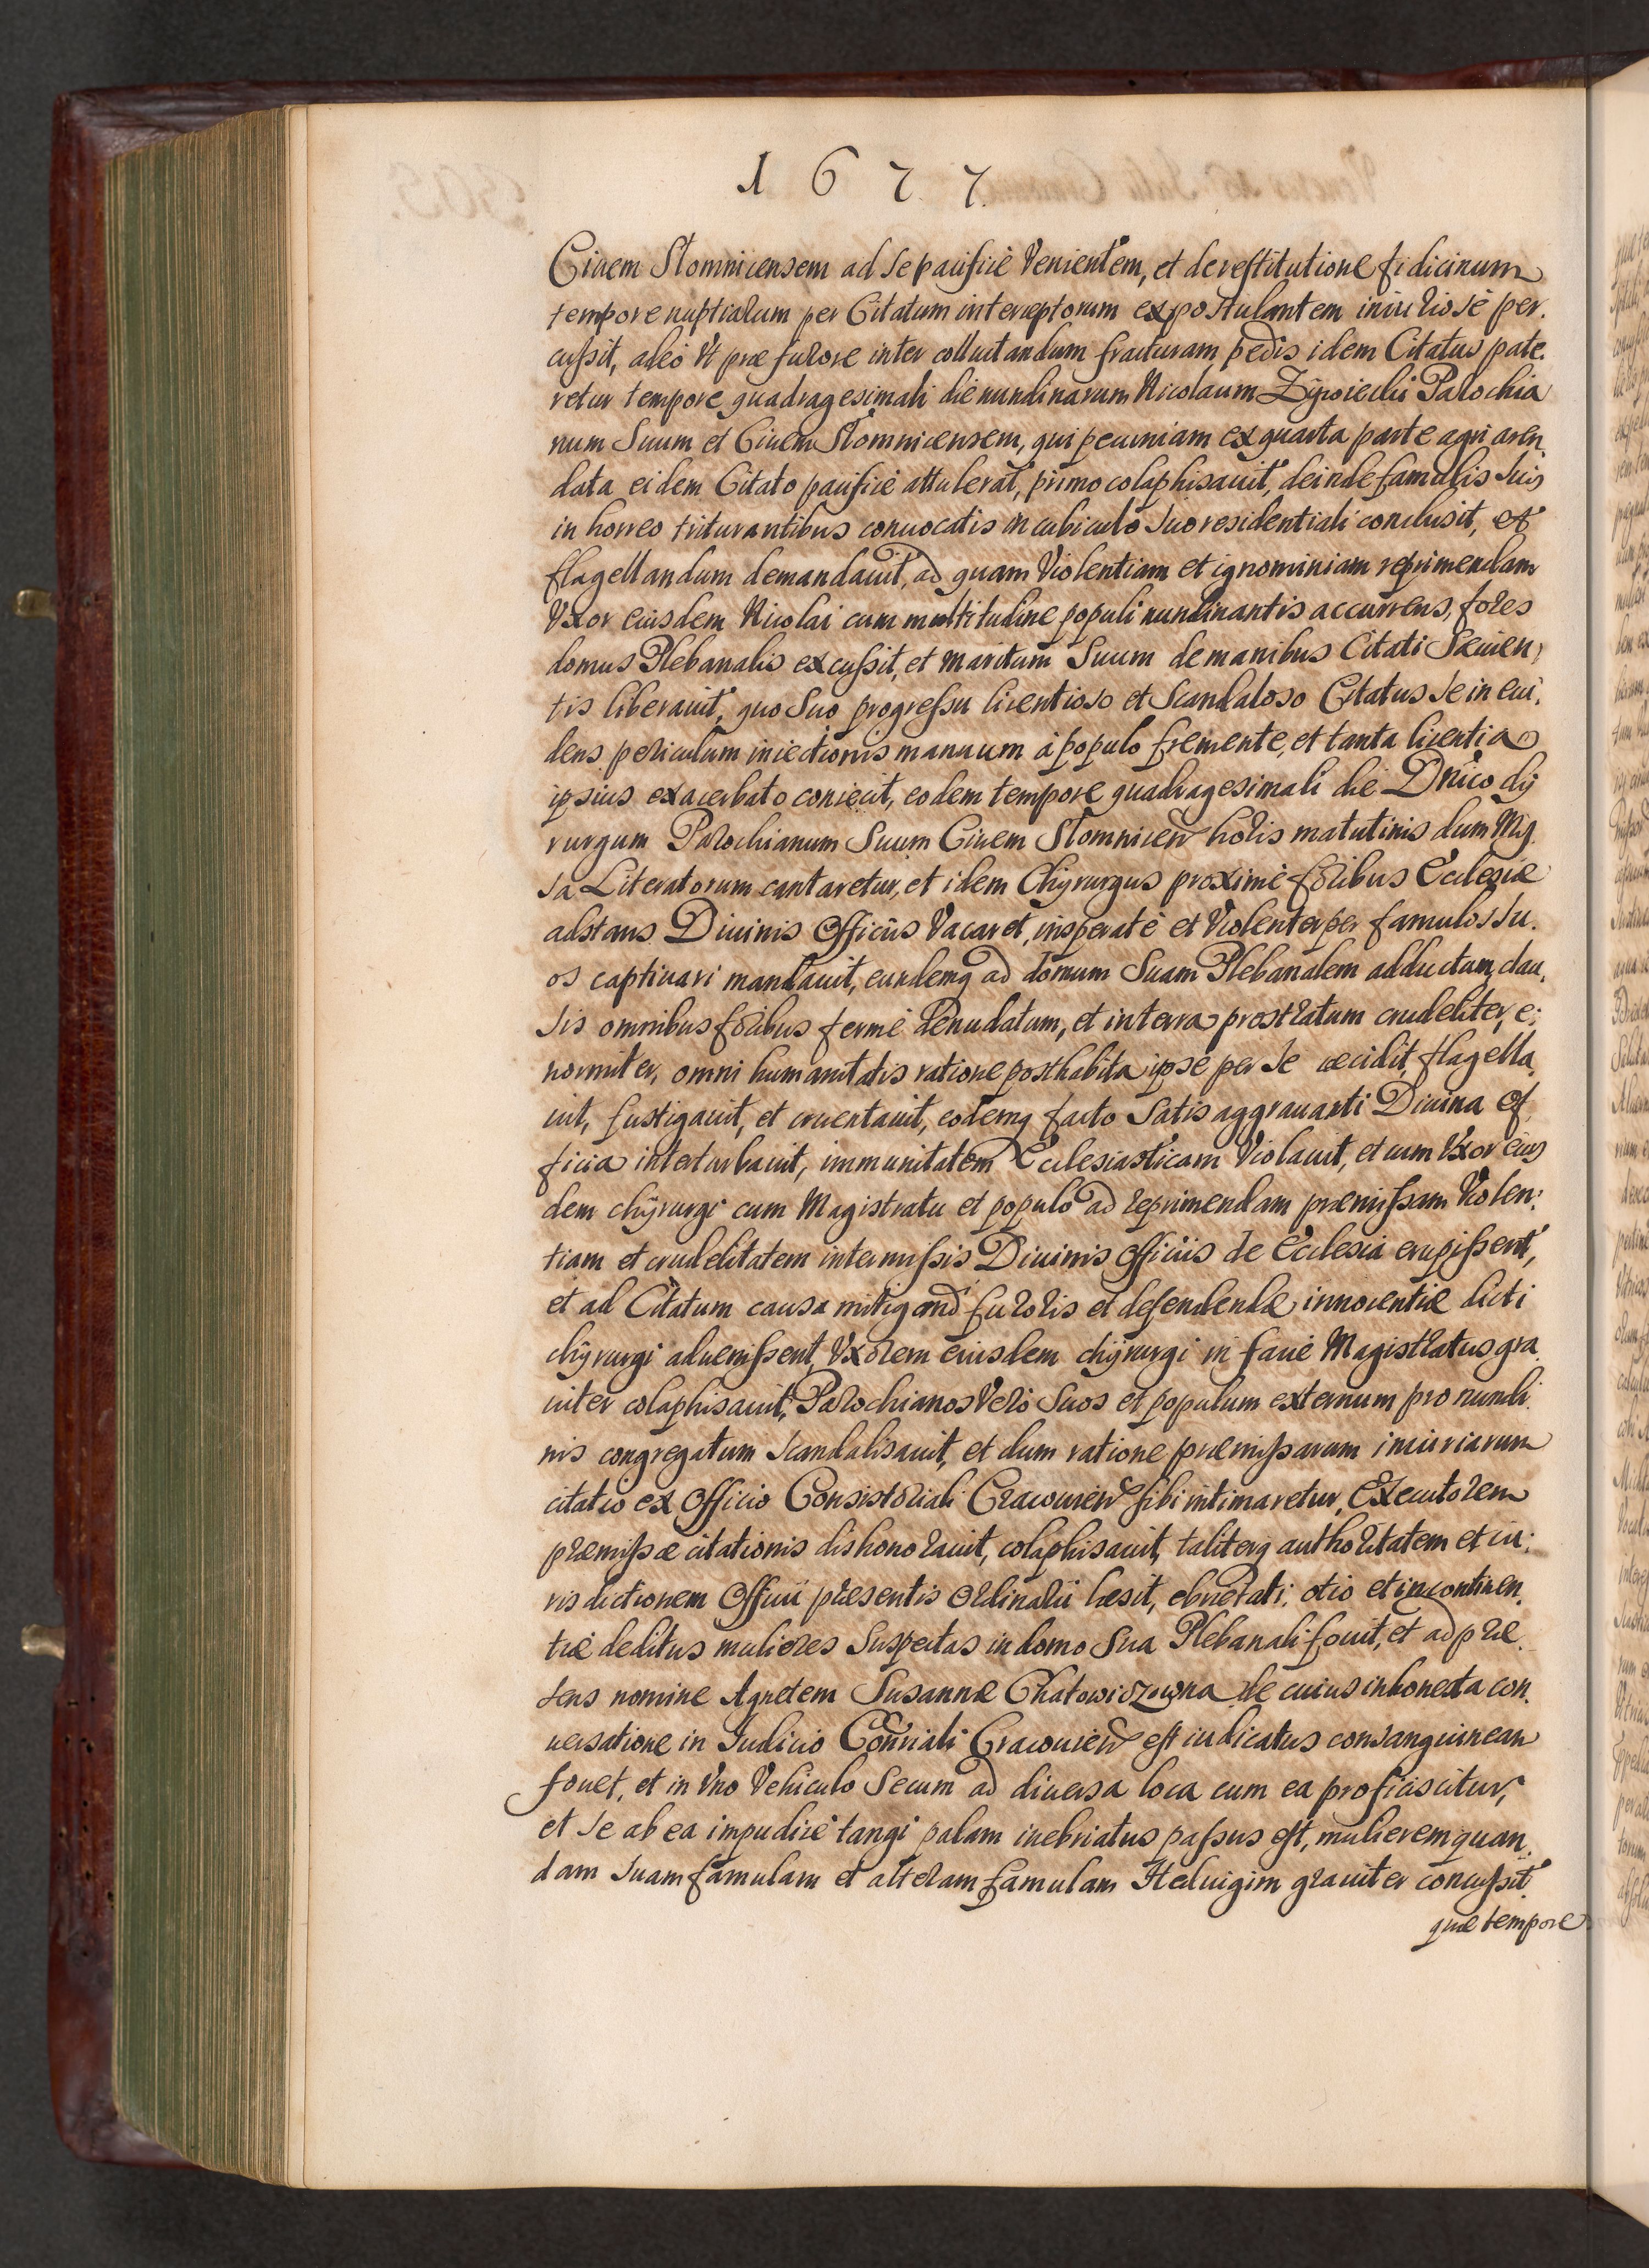 1677.
Ciuem Slomnicensem ad se pacifice Venientem, et de restitutione fidicinum
tempore nuptiarum per Citatum interceptorum expostulantem iniuriosè per.
cussit, adeò Vt præ furore inter colluctandum fracturam pedis idem Citatus pate.
retur tempore quadragesimali die nundinarum Nicolaum Parochia
num Suum et Ciuem Slomnicensem, qui pecuniam ex quarta parte agri aren,
data eidem Citato pacificè attulerat, primo colaphisauit, deinde famulis suis
in horreo triturantibus conuocatis in cubiculo suo residentiali conclusit, et
flagellandum demandauit, ad quam Violentiam et ignominiam reprimendam
Vxor eiusdem Nicolai cum multitudine populi nundinantis accurrens, fores
domus Plebanalis excussit, et maritum Suum de manibus Citati Sæuien,
tis liberauit, quo Suo progressu licentioso et Scandaloso Citatus se in eui,
dens periculum iniectionis manuum à populo fremente, et tanta licentia
ipsius exacerbato coniecit, eodem tempore quadragesimali die Dnico chÿ
rurgum Parochianum Suum Ciuem Slomnicen horis matutinis dum Mis.
sa Literatorum cantaretur, et idem Chÿrurgus proximè foribus Ecclesiæ
adstans Diuinis Officiis Vacaret, insperatè et Violenter per famulos su.
os captiuari mandauit, eundemq ad domum Suam Plebanalem adductum, clau,
sis omnibus foribus fermè denudatum, et in terra prostratum crudeliter, e;
normiter, omni humanitatis ratione posthabita ipse per se cecidit, flagella,
uit, fustigauit, et cruentauit, eodemq facto Satis aggrauanti Diuina of
ficia interturbauit, immunitatem Ecclesiasticam Violauit, et cum Vxor eius
dem chÿrurgi cum Magistratu et populo ad reprimendam præmissam Violen:
tiam et crudelitatem intermissis Diuinis Officiis de Ecclesia erupissent,
et ad Citatum causa mitigandi furoris et defendendæ innocentiæ dicti
chÿrurgi aduenissent, Vxorem eiusdem chÿrurgi in facie Magistratus gra
uiter colaphisauit, Parochianos Verò Suos et populum externum pro nundi
nis congregatum scandalisauit, et dum ratione præmissarum iniuriarum
citatio ex Officio Consistoriali Cracouien sibi intimaretur, Executorem
præmissæ citationis dishonorauit, colaphisauit, taliterq authoritatem et iu:
risdictionem Officii præsentis Ordinarii læsit, ebrietati, otio et incontinen.
tiæ deditus mulieres Suspectas in domo Sua Plebanali fouit, et ad præ.
sens nomine Agnetem Susannæ Chatowiczowna de cuius inhonesta con.
uersatione in Iudicio Conriali Cracouien est iudicatus consanguinean
fouet, et in Vno Vehiculo Secum ad diuersa loca cum ea proficiscitur,
et se ab ea impudicè tangi palam inebriatus passus est, mulierem quan.
dam suam famulam et alteram famulam Heduigim grauiter concussit.
quæ tempore